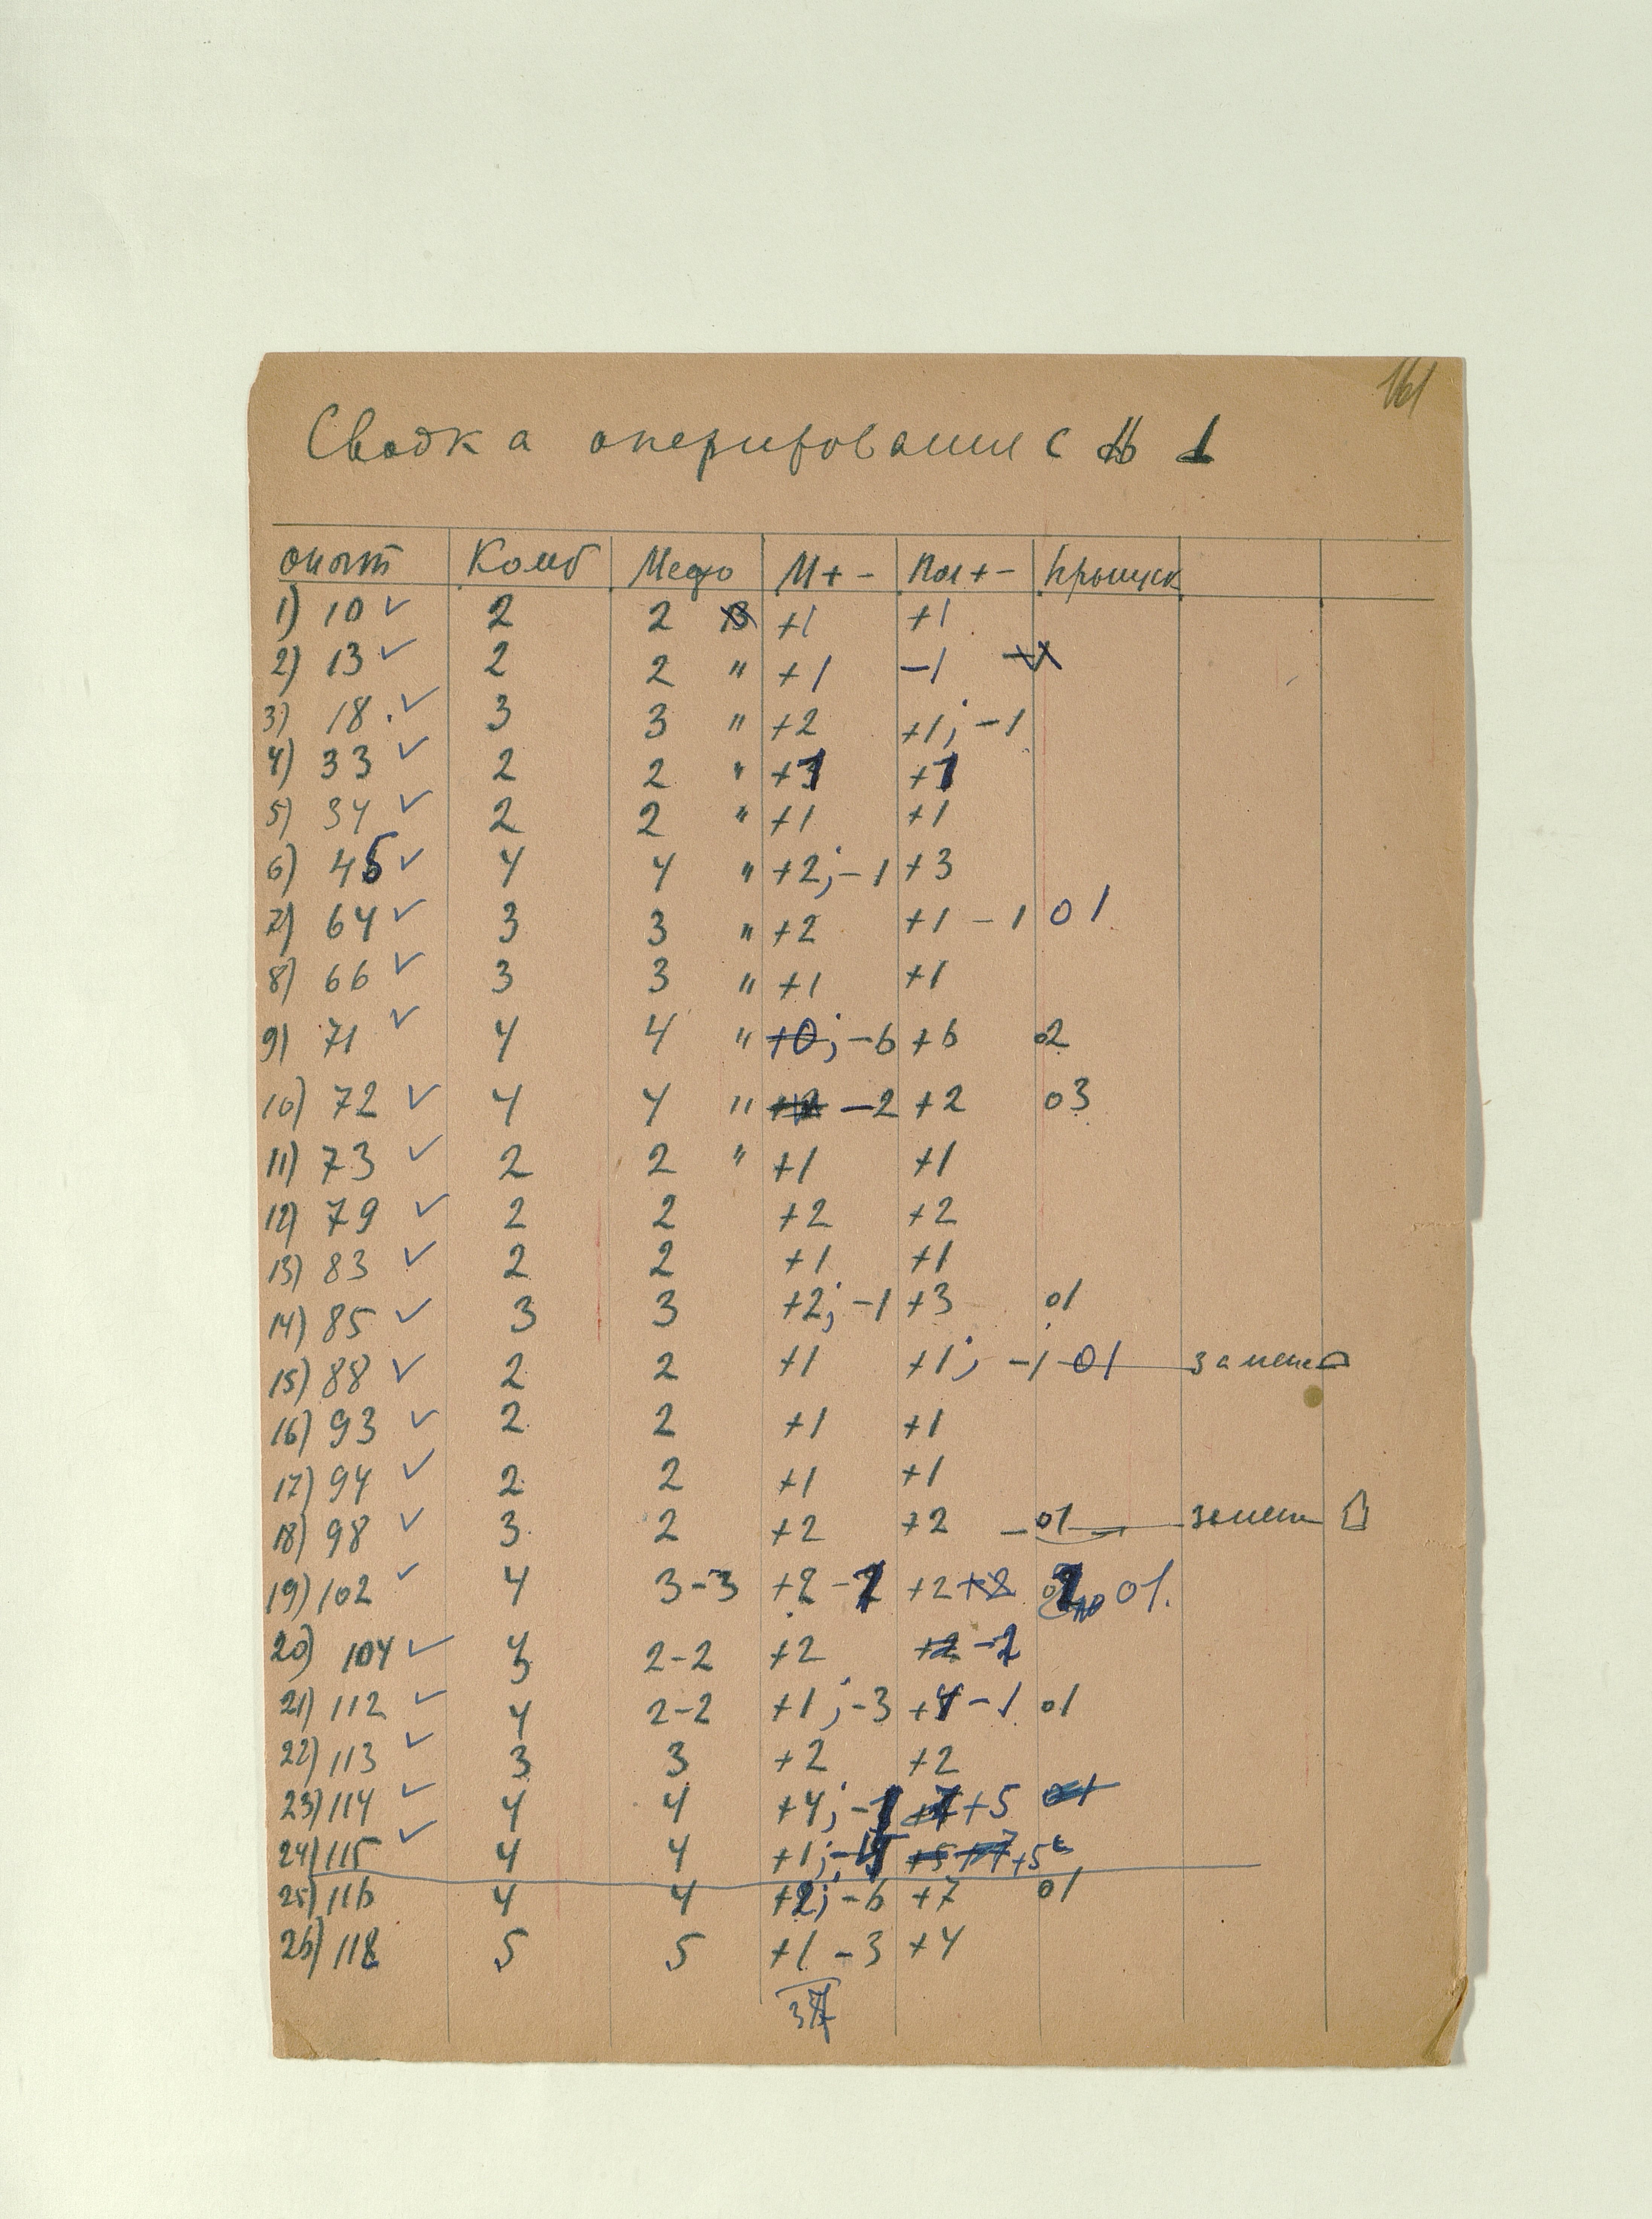 161
Сводка оперирования с № 1
опыт Комб Медю М + - Пол + - Пропуск
1) 10 ✓ 2 2 +1 +1
2) 13 ✓ 2 2 " +1 -1
3) 18 ✓ 3 3 " +2 +1; -1
4) 33 ✓ 2 2 " +1 +1
5) 34 ✓ 2 2 " +1 +1
6) 45 ✓ 4 4 " +2; -1 +3
7) 64 ✓ 3 3 " +2 +1 - 1 01
8) 66 ✓ 3 3 " +1 +1
9) 71 ✓ 4 4 " +0; -6 +6 02
10) 72 ✓ 4 4 " -2 +2 03
11) 73 ✓ 2 2 " +1 +1
12) 79 ✓ 2 2 +2 +2
13) 83 ✓ 2 2 +1 +1
14) 85 ✓ 3 3 +2; -1 +3 01
15) 88 ✓ 2 2 +1 +1; -1 01
16) 93 ✓ 2 2 +1 +1
17) 94 ✓ 2 2 +1 +1
18) 98 ✓ 3 2 +2 +2 - 01
19) 102 ✓ 4 3-3 +2 - +2 +2 01.
20) 104 ✓ 2-2 +2 +2 -2
21) 112 ✓ 4 2-2 +1; -3 +4 -1 01
22) 113 ✓ 3 3 +2 +2
23) 114 ✓ 4 4 +4; -1 +5
24) 115 ✓ 4 4 +1; +5
25) 116 4 4 +2; -6 +7 01
26) 118 5 5 +1 - 3 +4